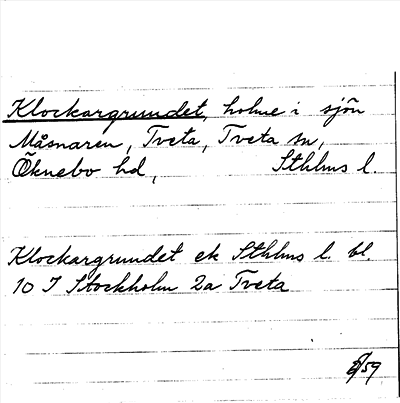 Klockargrundet, holme i sjön
Måsnaren, Tveta, Tveta sn,
Öknebo hd, Sthlms l.
Klockargrundet ek Sthlms l. bl.
10 I Stockholm 2a Tveta
59